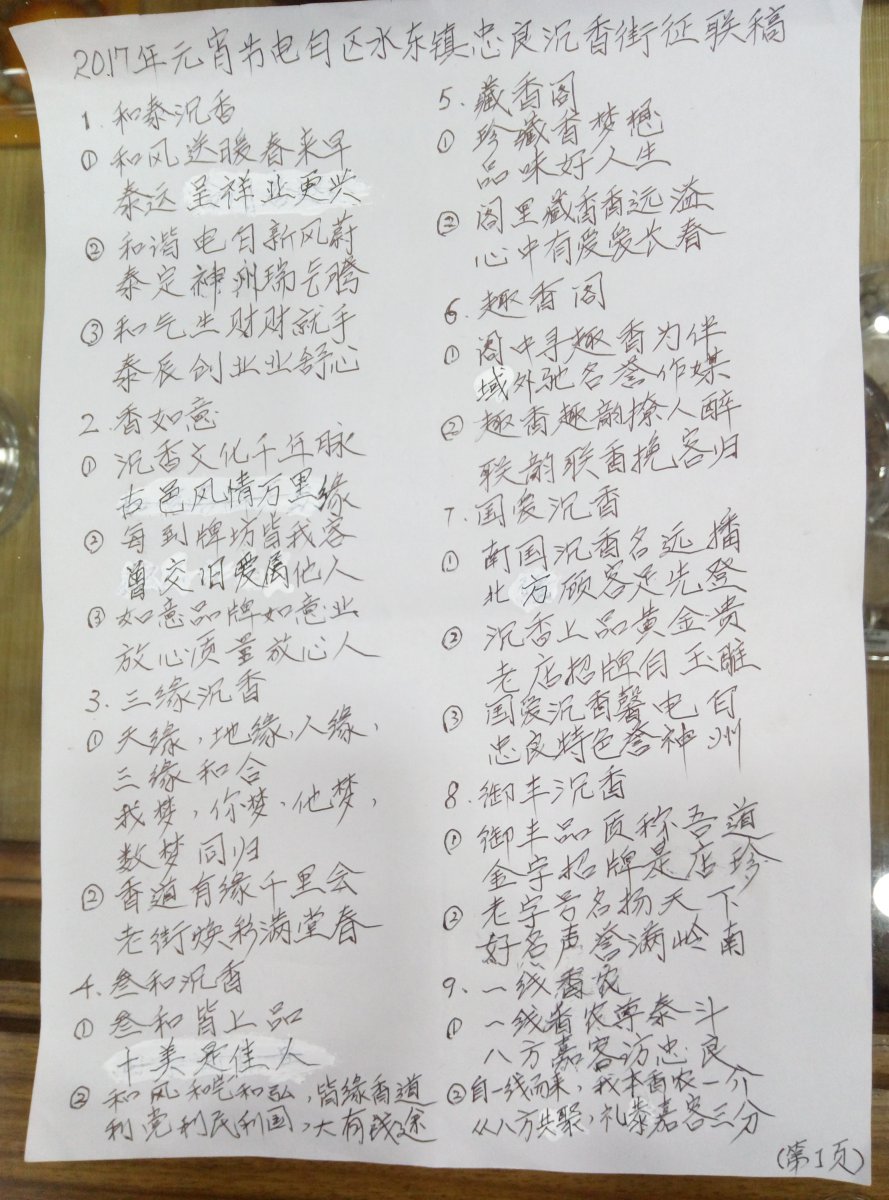 2017年元宵节电白区水东镇忠良沉香街征联稿
1. 和泰沉香
① 和风送暖春来早
泰运呈祥业更兴
② 和谐电白新风蔚
泰定神州瑞气腾
③ 和气生财财就手
泰辰创业业舒心
2. 香如意
① 沉香文化千年脉
古邑风情万里缘
② 每到牌坊皆我客
曾交旧爱属他人
③ 如意品牌如意业
放心质量放心人
3. 三缘沉香
① 天缘,地缘,人缘,
三缘和合
我梦,你梦,他梦,
数梦同归
② 香道有缘千里会
老街焕彩满堂春
4. 叁和沉香
① 叁和皆上品
十美是佳人
② 和风和气和弘,皆缘香道
利党利民利国,大有钱途
5. 藏香阁
① 珍藏香梦想
品味好人生
② 阁里藏香香远溢
心中有爱爱长春
6. 趣香阁
① 阁中寻趣香为伴
域外驰名誉作媒
② 趣香趣韵撩人醉
联韵联香挽客归
7. 国爱沉香
① 南国沉香名远播
北方顾客足先登
② 沉香上品黄金贵
老店招牌白玉雕
③ 国爱沉香馨电白
忠良特色誉神州
8. 御丰沉香
① 御丰品质称吾道
金字招牌是店珍
② 老字号名扬天下
好名声誉满岭南
9. 一线香农
① 一线香农尊泰斗
八方嘉客访忠良
② 自一线而来,我本香农一个
从八方共聚,礼泰嘉客三分
(第1页)